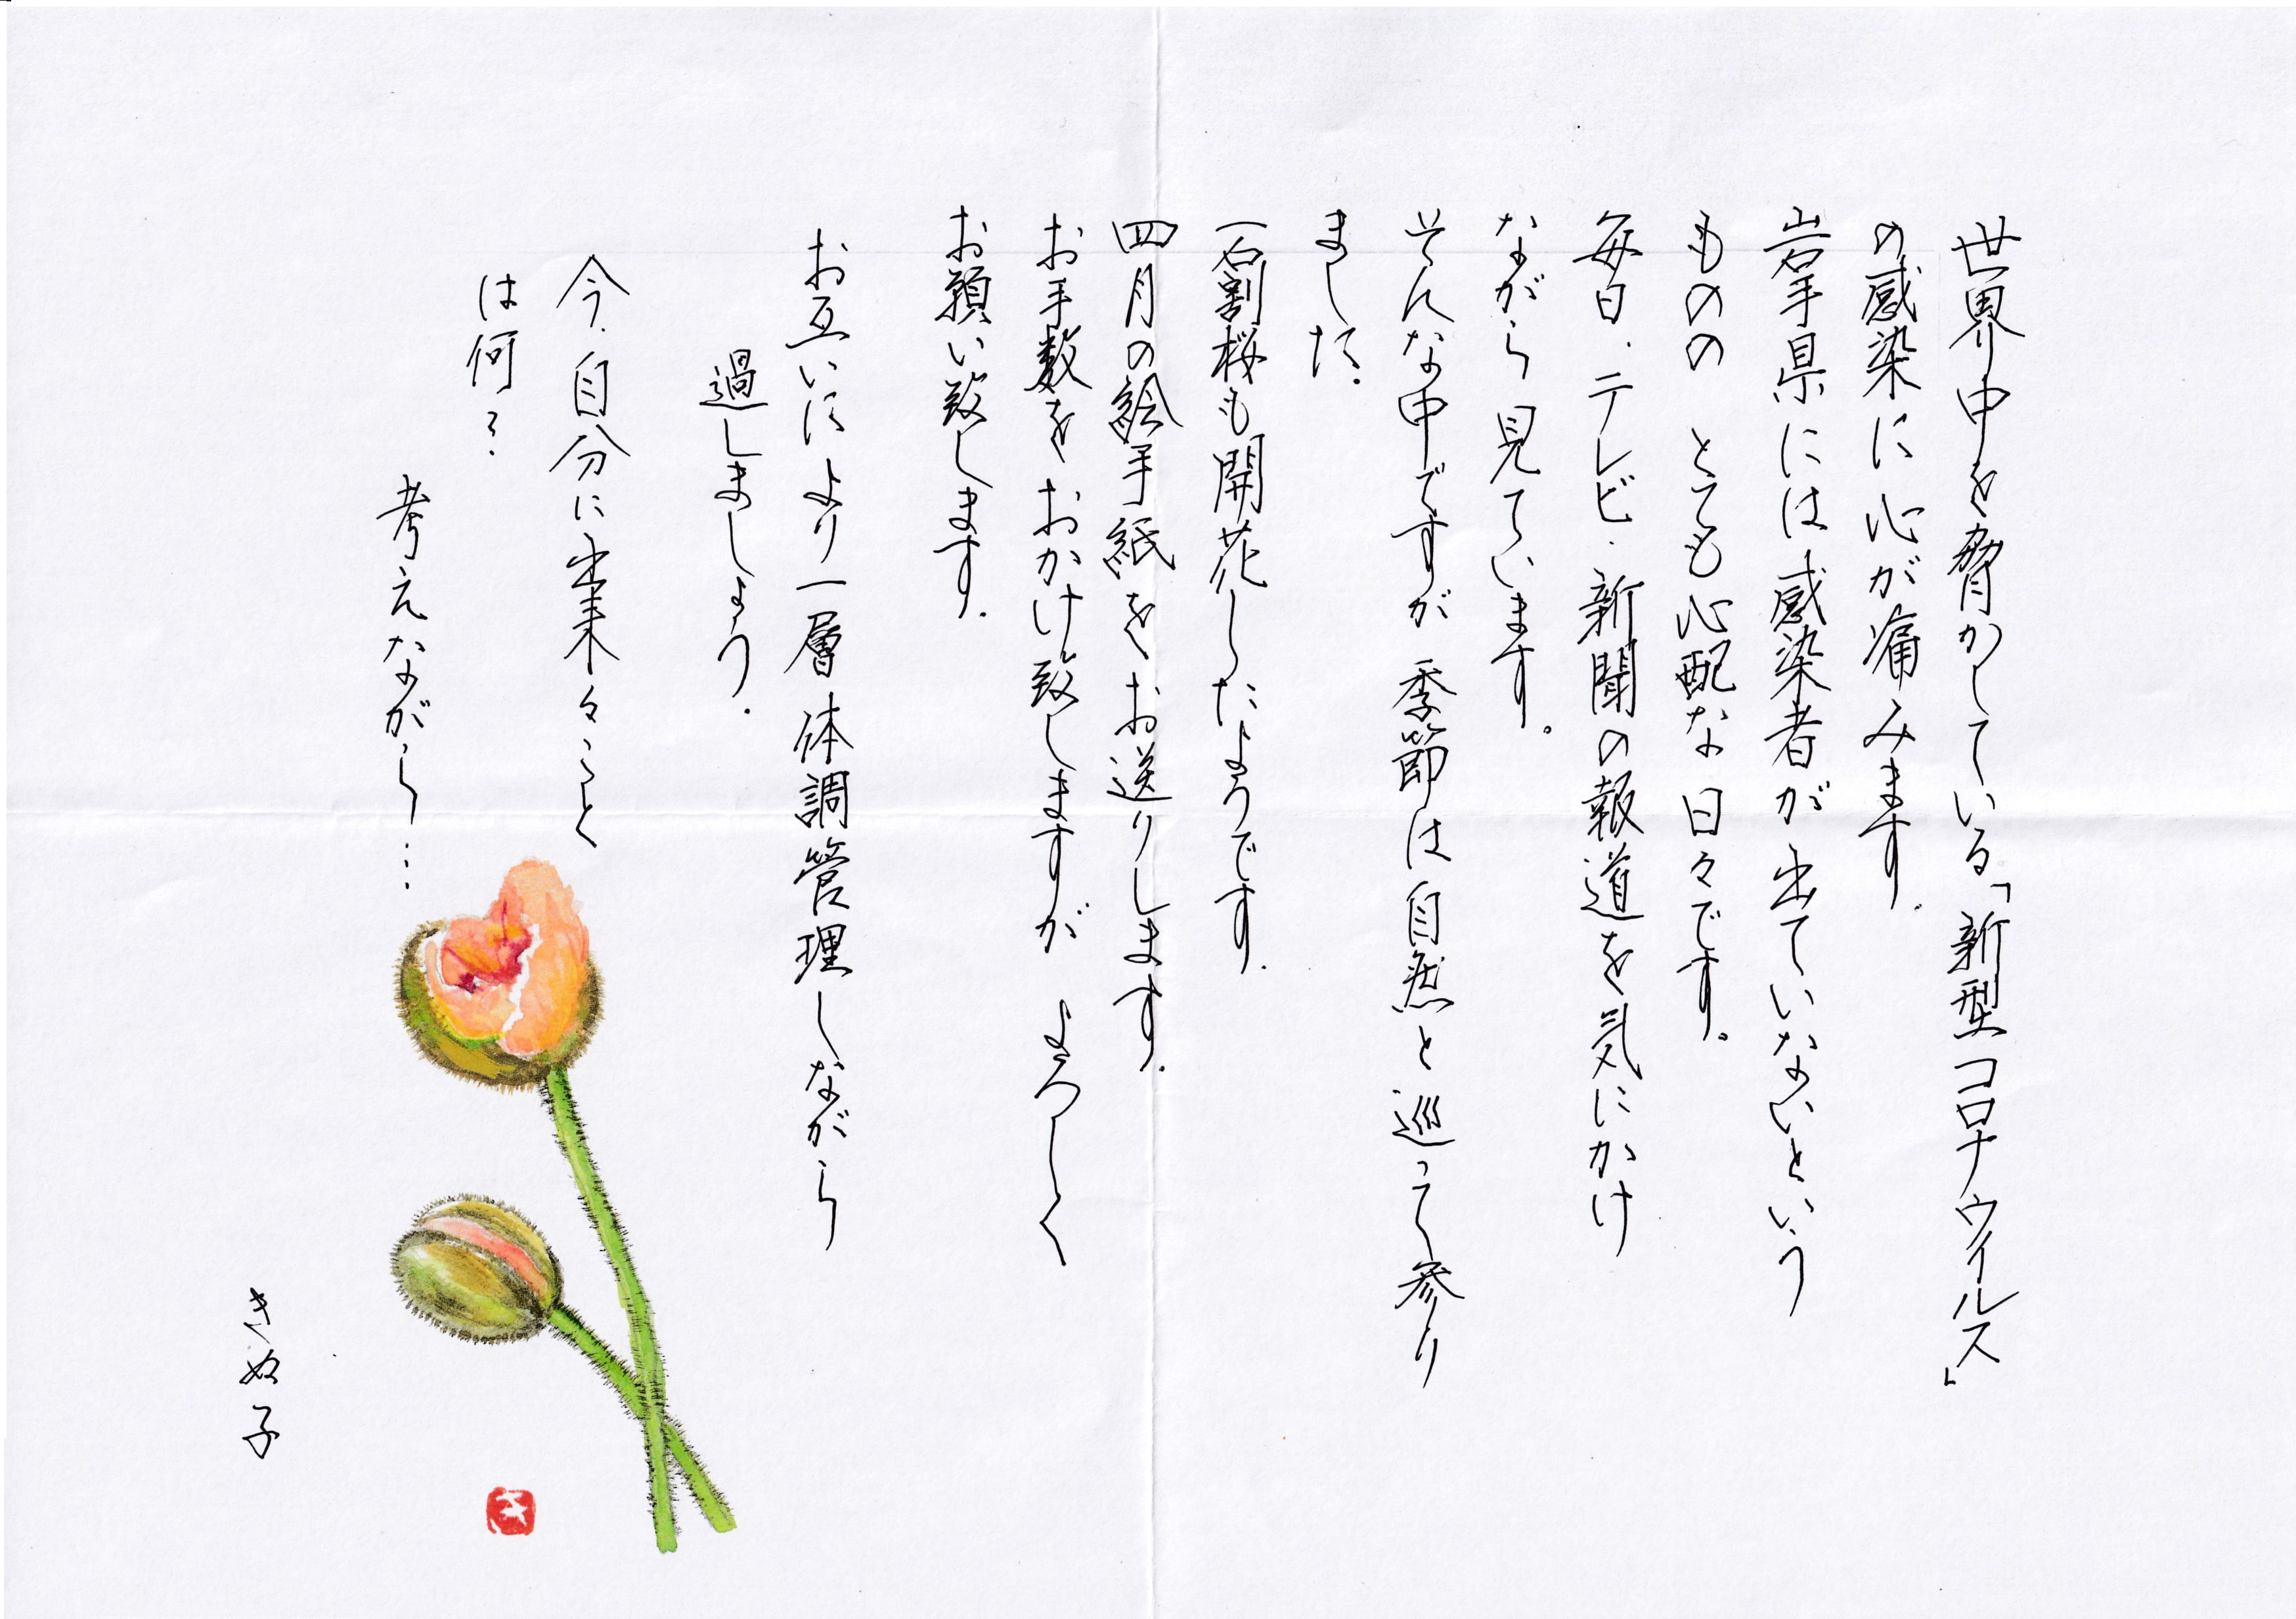 世界中を脅かしている「新型コロナウイルス」
の感染に心が痛みます.
岩手県には感染者が出ていないという
ものの とても心配な日々です。
毎日.テレビ.新聞の報道を気にかけ
ながら見ています。
そんな中ですが 季節は自然と巡って参り
ました.
石割桜も開花したようです.
四月の絵手紙をお送りします.
お手数をおかけ致しますが よろしく
お願い致します.
お互いにより一層 体調管理しながら
過しましょう.
今.自分に出来ること
は何?
考えながら…
きぬ子
き